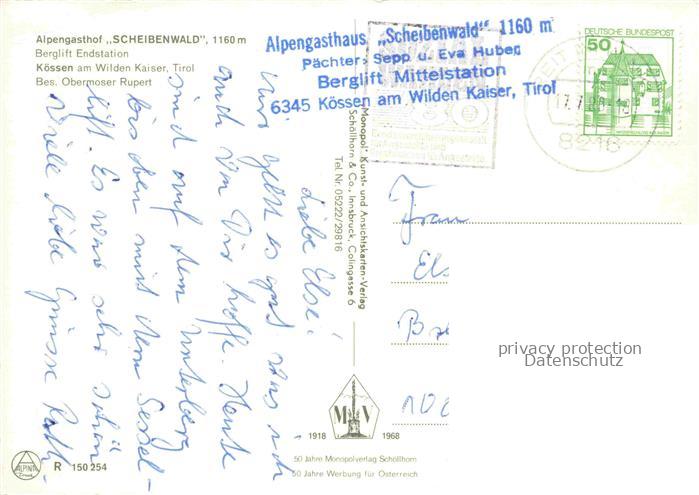 Alpengasthof „SCHEIBENWALD", 1160 m
Berglift Endstation
Kössen am Wilden Kaiser, Tirol
Bes. Obermoser Rupert
Alpengasthaus „Scheibenwald" 1160 m
Pächter: Sepp u. Eva Huber
Berglift Mittelstation
6345 Kössen am Wilden Kaiser, Tirol
DEUTSCHE BUNDESPOST
50
8216
Liebe Else!
Mir geht es gut was ich
auch von Dir hoffe. Heute
sind auf dem Unterberg
bis oben mit dem Sessel-
lift. Es war sehr schön
Viele liebe Grüsse
„Monopol" Kunst- und Ansichtskarten-Verlag
Schöllhorn & Co., Innsbruck, Colingasse 6
Tel. Nr. 05222/29816
Frau
Els
privacy protection
Datenschutz
M V
1918 1968
50 Jahre Monopolverlag Schöllhorn
50 Jahre Werbung für Österreich
ALPINA
R 150 254